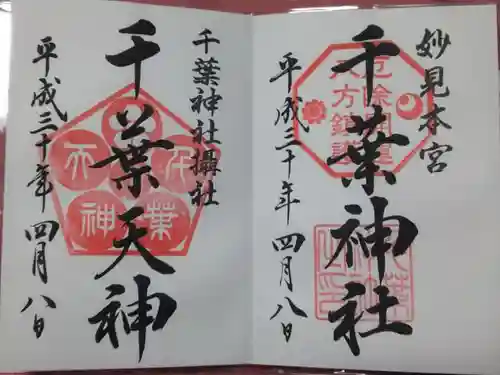 妙見本宮
厄除開運
八方鎮護
千葉神社
平成三十年 四月八日
千葉神社攝社
千葉
天神
千葉天神
平成三十年 四月八日